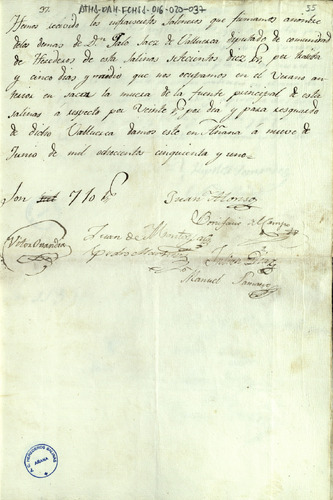 37 ATHA-DAH-FCHCJ-016-020-037 35
Hemos recivido los infraescritos Salineros que firmamos a nombre
de los demas de Dn Pablo Saez de Valluerca diputado de comunidad
de Herederos de estas salinas setecientos diez rs por treinta
y cinco dias y medio que nos ocupamos en el Verano an
terior en sacar la muera de la fuente principal de estas
salinas a respecto por Veinte rs por dia y para resguardo
de dicho Valluerca damos este en Añana a nueve de
Junio de mil ochocientos cincuenta y uno
Son 710 rs
Juan Alonso
Bonifacio del Campo
Victor Ovandia
Juan de Montoya
Pedro Martinez
Julian Diez
Manuel Samaniego
COMUNIDAD DE HEREDEROS
AÑANA